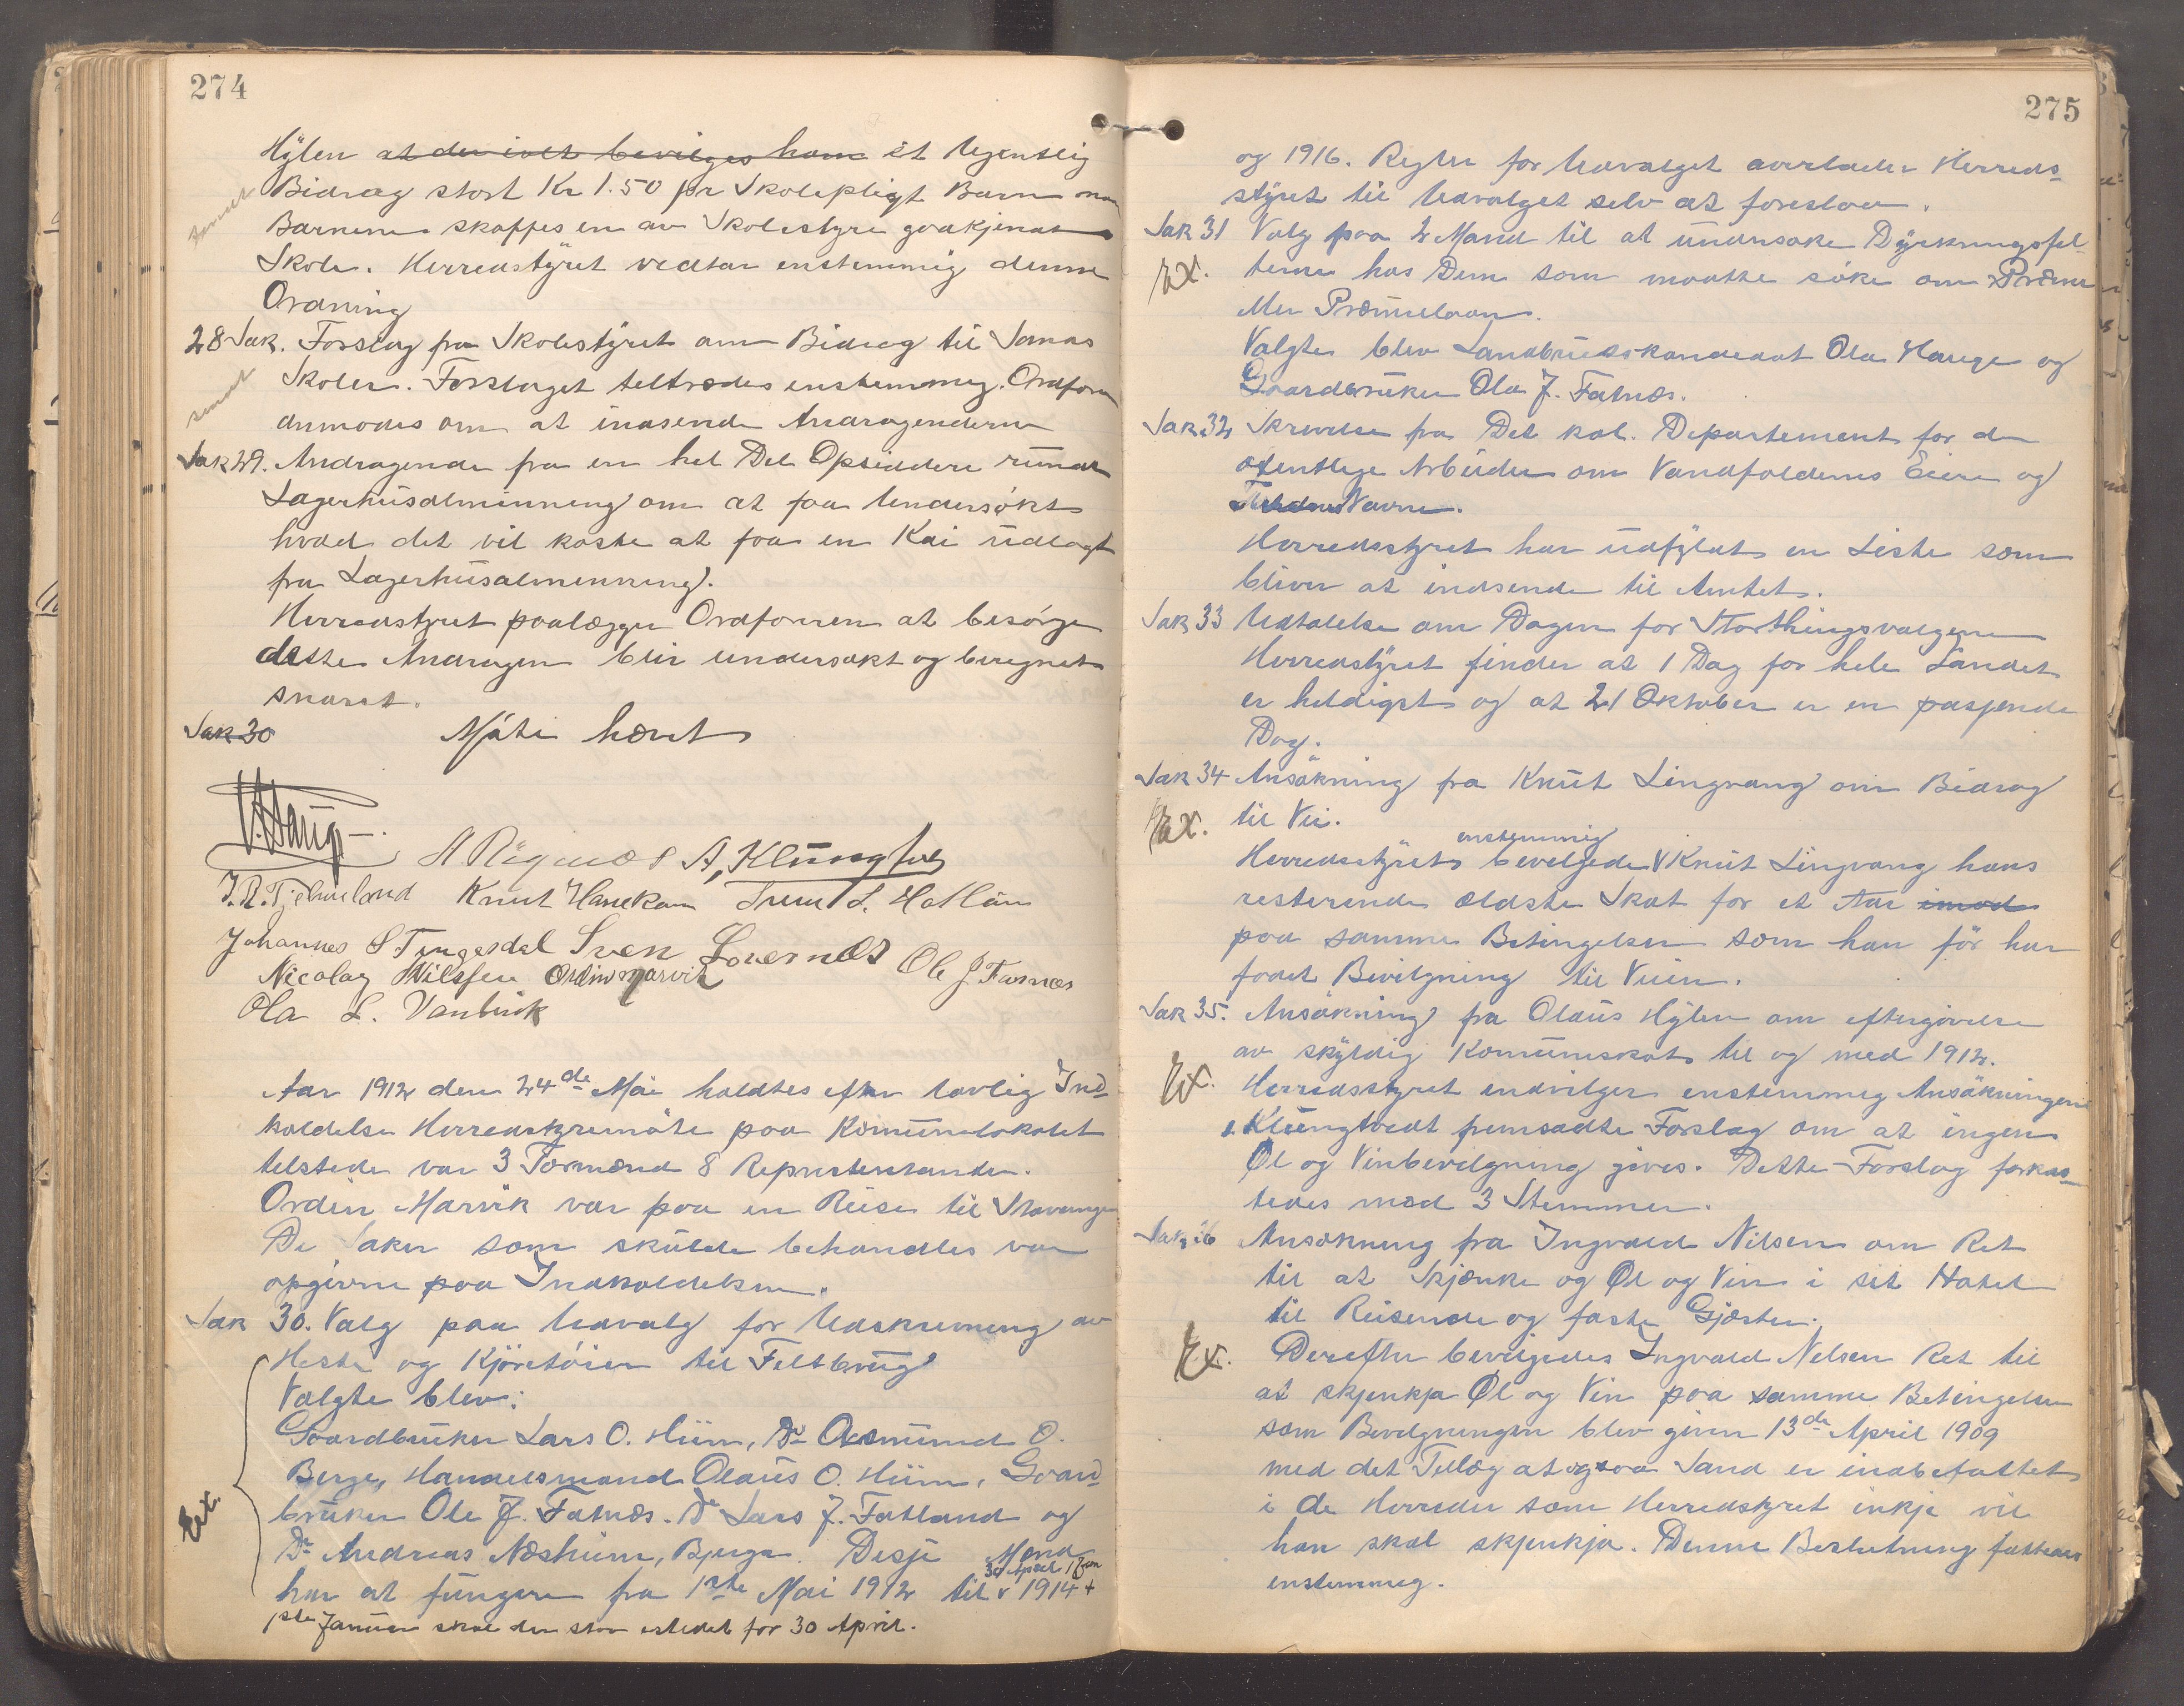 274
Hylen at der ialt bevilges ham et Ugentlig
Bidrag stort Kr 1.50 pr Skolepligt Barn
Barnene skaffes en av Skolestyre godkjendt
Skole. Herredstyret vedtar enstemmig denne
Ordning
28 Sak. Forslag fra Skolestyret om Bidrag til Sands
sendt
Skoler. Forslaget tiltrædes enstemmig. Ordfører
anmodes om at indsende Andragenderne
Sak 29. Andragende fra en hel Del Opsiddere rundt
Lagerhusalminning om at faa Undersøkt
hvad det vil koste at faa en Kai udlagt
fra Lagerhusalmenning.
Herredstyret paalægger Ordføreren at besørge
dette Andragen blir undersøkt og beregnet
snarest.
Sak 30
Møte hævet
J. R. Tjelmeland Knut Hanekam L. Hatlöin
Johannes S Tengesdal Sven Lovernes Ole J. Fatnæs
Nicolay Nilssen Ordin Marvik
Ola L. Vanbuik
Aar 1912 den 24de Mai holdtes efter lovlig Ind-
kaldelse Herredstyremøte paa Komunelokalet
tilstede var 3 Formænd 8 Representanter.
Ordin Marvik var paa en Reise til Stavanger
De Saker som skulde behandles var
opgivne paa Indkaldelsen.
Sak 30. Valg paa Udvalg for Udskrivning av
Heste og Kjøretøier til Feltbrug
Valgte blev:
Gaardbruker Lars O. Hiim, Do Aasmund O.
Berge, Handelsmand Olaus O. Hiim, Gaard-
Ext.
bruker Ole J. Fatnæs. Do Lars J. Fatland og
Do Andreas Næsheim, Bjerga. Desse Mænd
30 April
har at fungere fra 1ste Mai 1912 til v 1914 +
1ste Januar skal den staa istedet for 30 April.
275
og 1916. Regler for Udvalget overlader Herreds-
styret til Udvalget selv at foreslaa.
Sak 31 Valg paa 2 Mand til at undersøke Dyrkningsfel-
Ex.
terne hos Dem som maatte søke om Præmie
eller Præmielaan.
Valgte blev Landbrukskandidat Ola Hauge og
Gaardbruker Ola J. Fatnæs.
Sak 32 Skrivelse fra Det kgl. Departement for de
ofentlige Arbeider om Vandfaldenes Eiere og
Navne.
Herredsstyret har udfyldt en Liste som
bliver at indsende til Amtet.
Sak 33 Udtalelse om Dagen for Storthingsvalgene
Herredstyret finder at 1 Dag for hele Landet
er heldigst og at 21 Oktober er en passende
Dag.
Sak 34 Ansøkning fra Knut Lingvang om Bidrag
Ex.
til Vei.
enstemmig
Herredsstyret bevilgede v Knut Lingvang hans
resterende ældste Skat for et Aar imod
paa samme Betingelser som han før har
faaet Bevilgning til Veien.
Sak 35. Ansøkning fra Olaus Hylen om eftergivelse
av skyldig Komuneskat til og med 1912.
Ex.
Herredsstyret indvilger enstemmig Ansøkningen
Klungtvedt fremsadte Forslag om at ingen
Øl og Vinbevilgning gives. Dette Forslag forkas-
tedes mod 3 Stemmer.
Sak 36 Ansøkning fra Ingvald Nilsen om Ret
til at Skjænke og Øl og Vin i sit Hotel
til Reisende og faste Gjæster.
Ex.
Derefter bevilgedes Ingvald Nelsen Ret til
at skjenkja Øl og Vin paa samme Betingelser
som Bevilgningen blev given 13de April 1909
med det Tillæg at ogsaa Sand er indbefattet
i de Herreder som Herredstyret inkje vil
han skal skjenkja. Denne Beslutning fattedes
enstemmig.